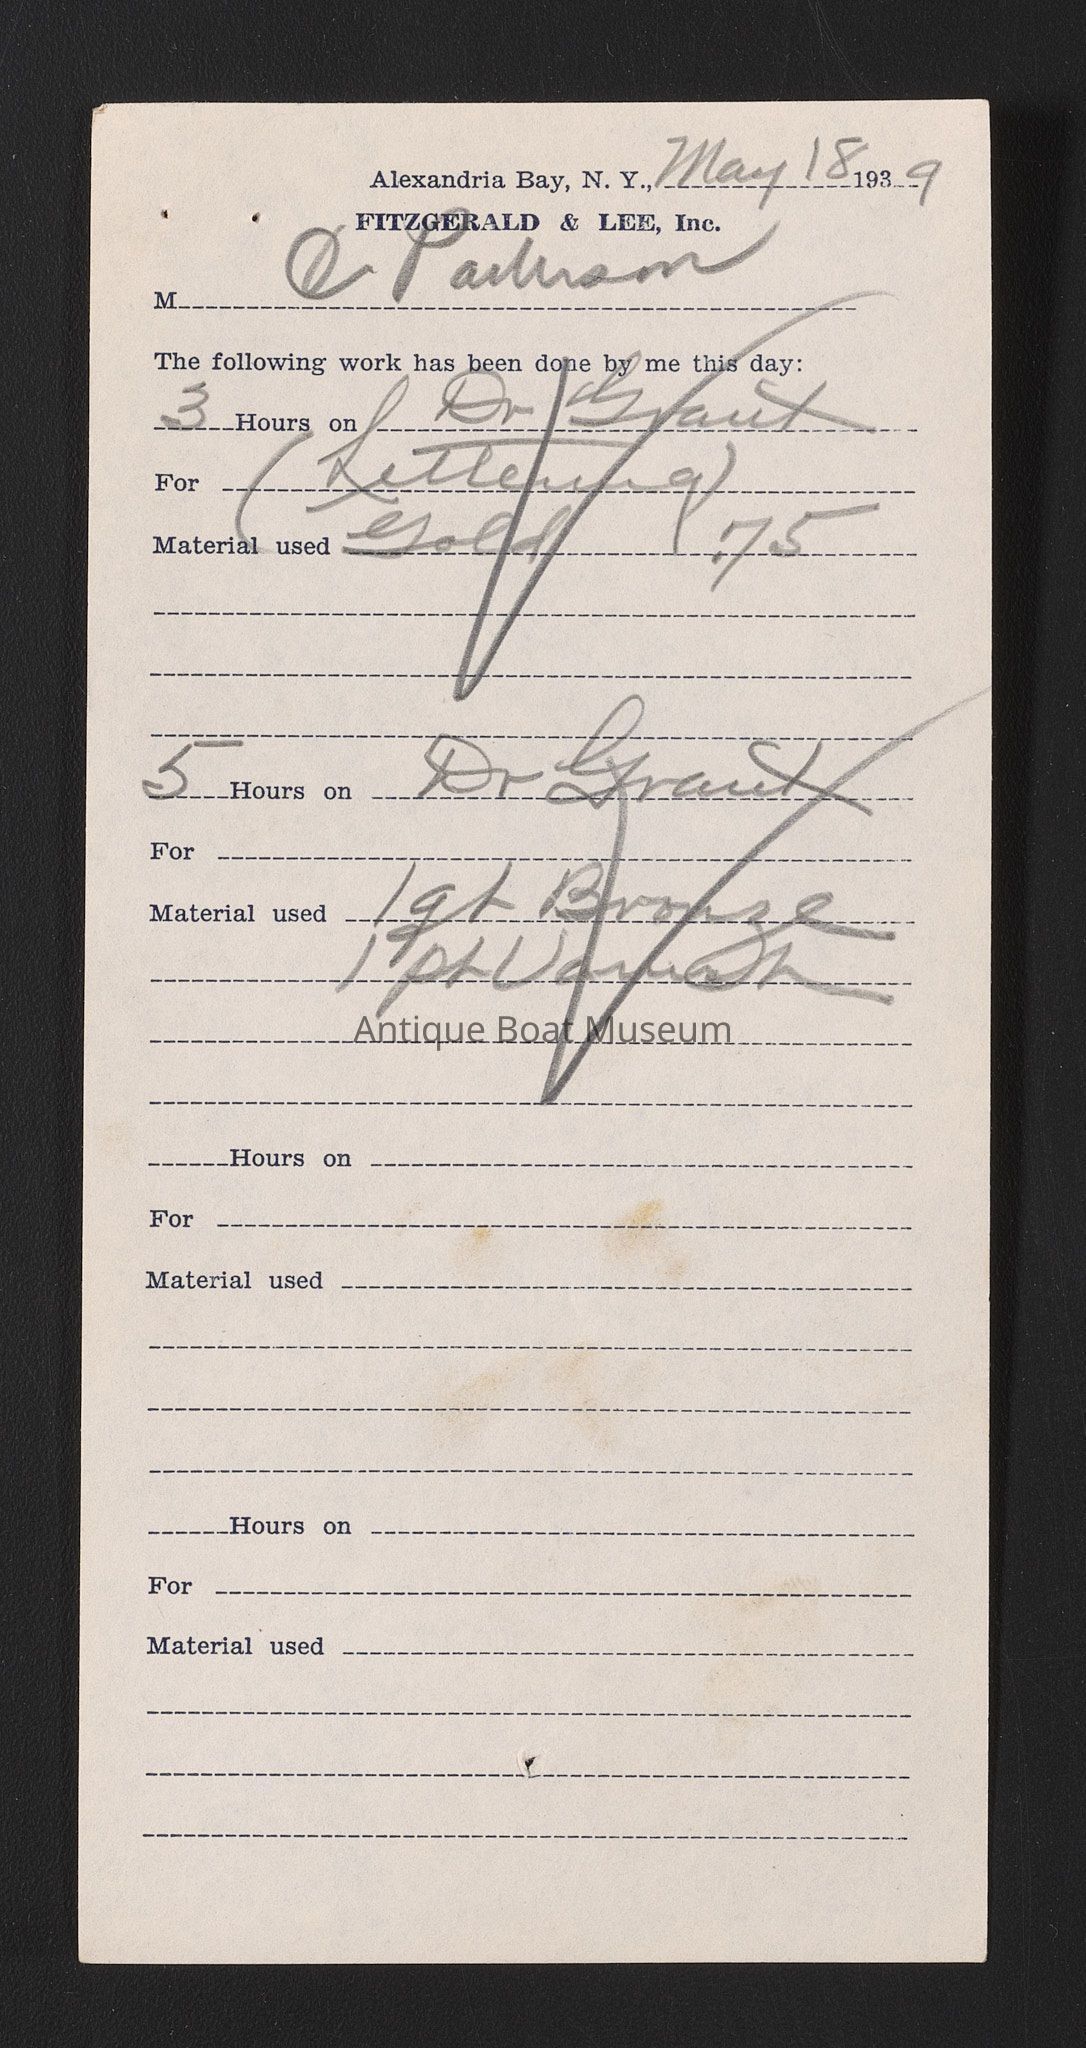 Alexandria Bay, N. Y., May 18 1939
FITZGERALD & LEE, Inc.
M
The following work has been done by me this day:
3 Hours on Dr Grant
For (Lettering)
Material used Gold .75
5 Hours on Dr Grant
For
Material used 1 qt Bronze
1 pt Varnish
Antique Boat Museum
Hours on
For
Material used
Hours on
For
Material used